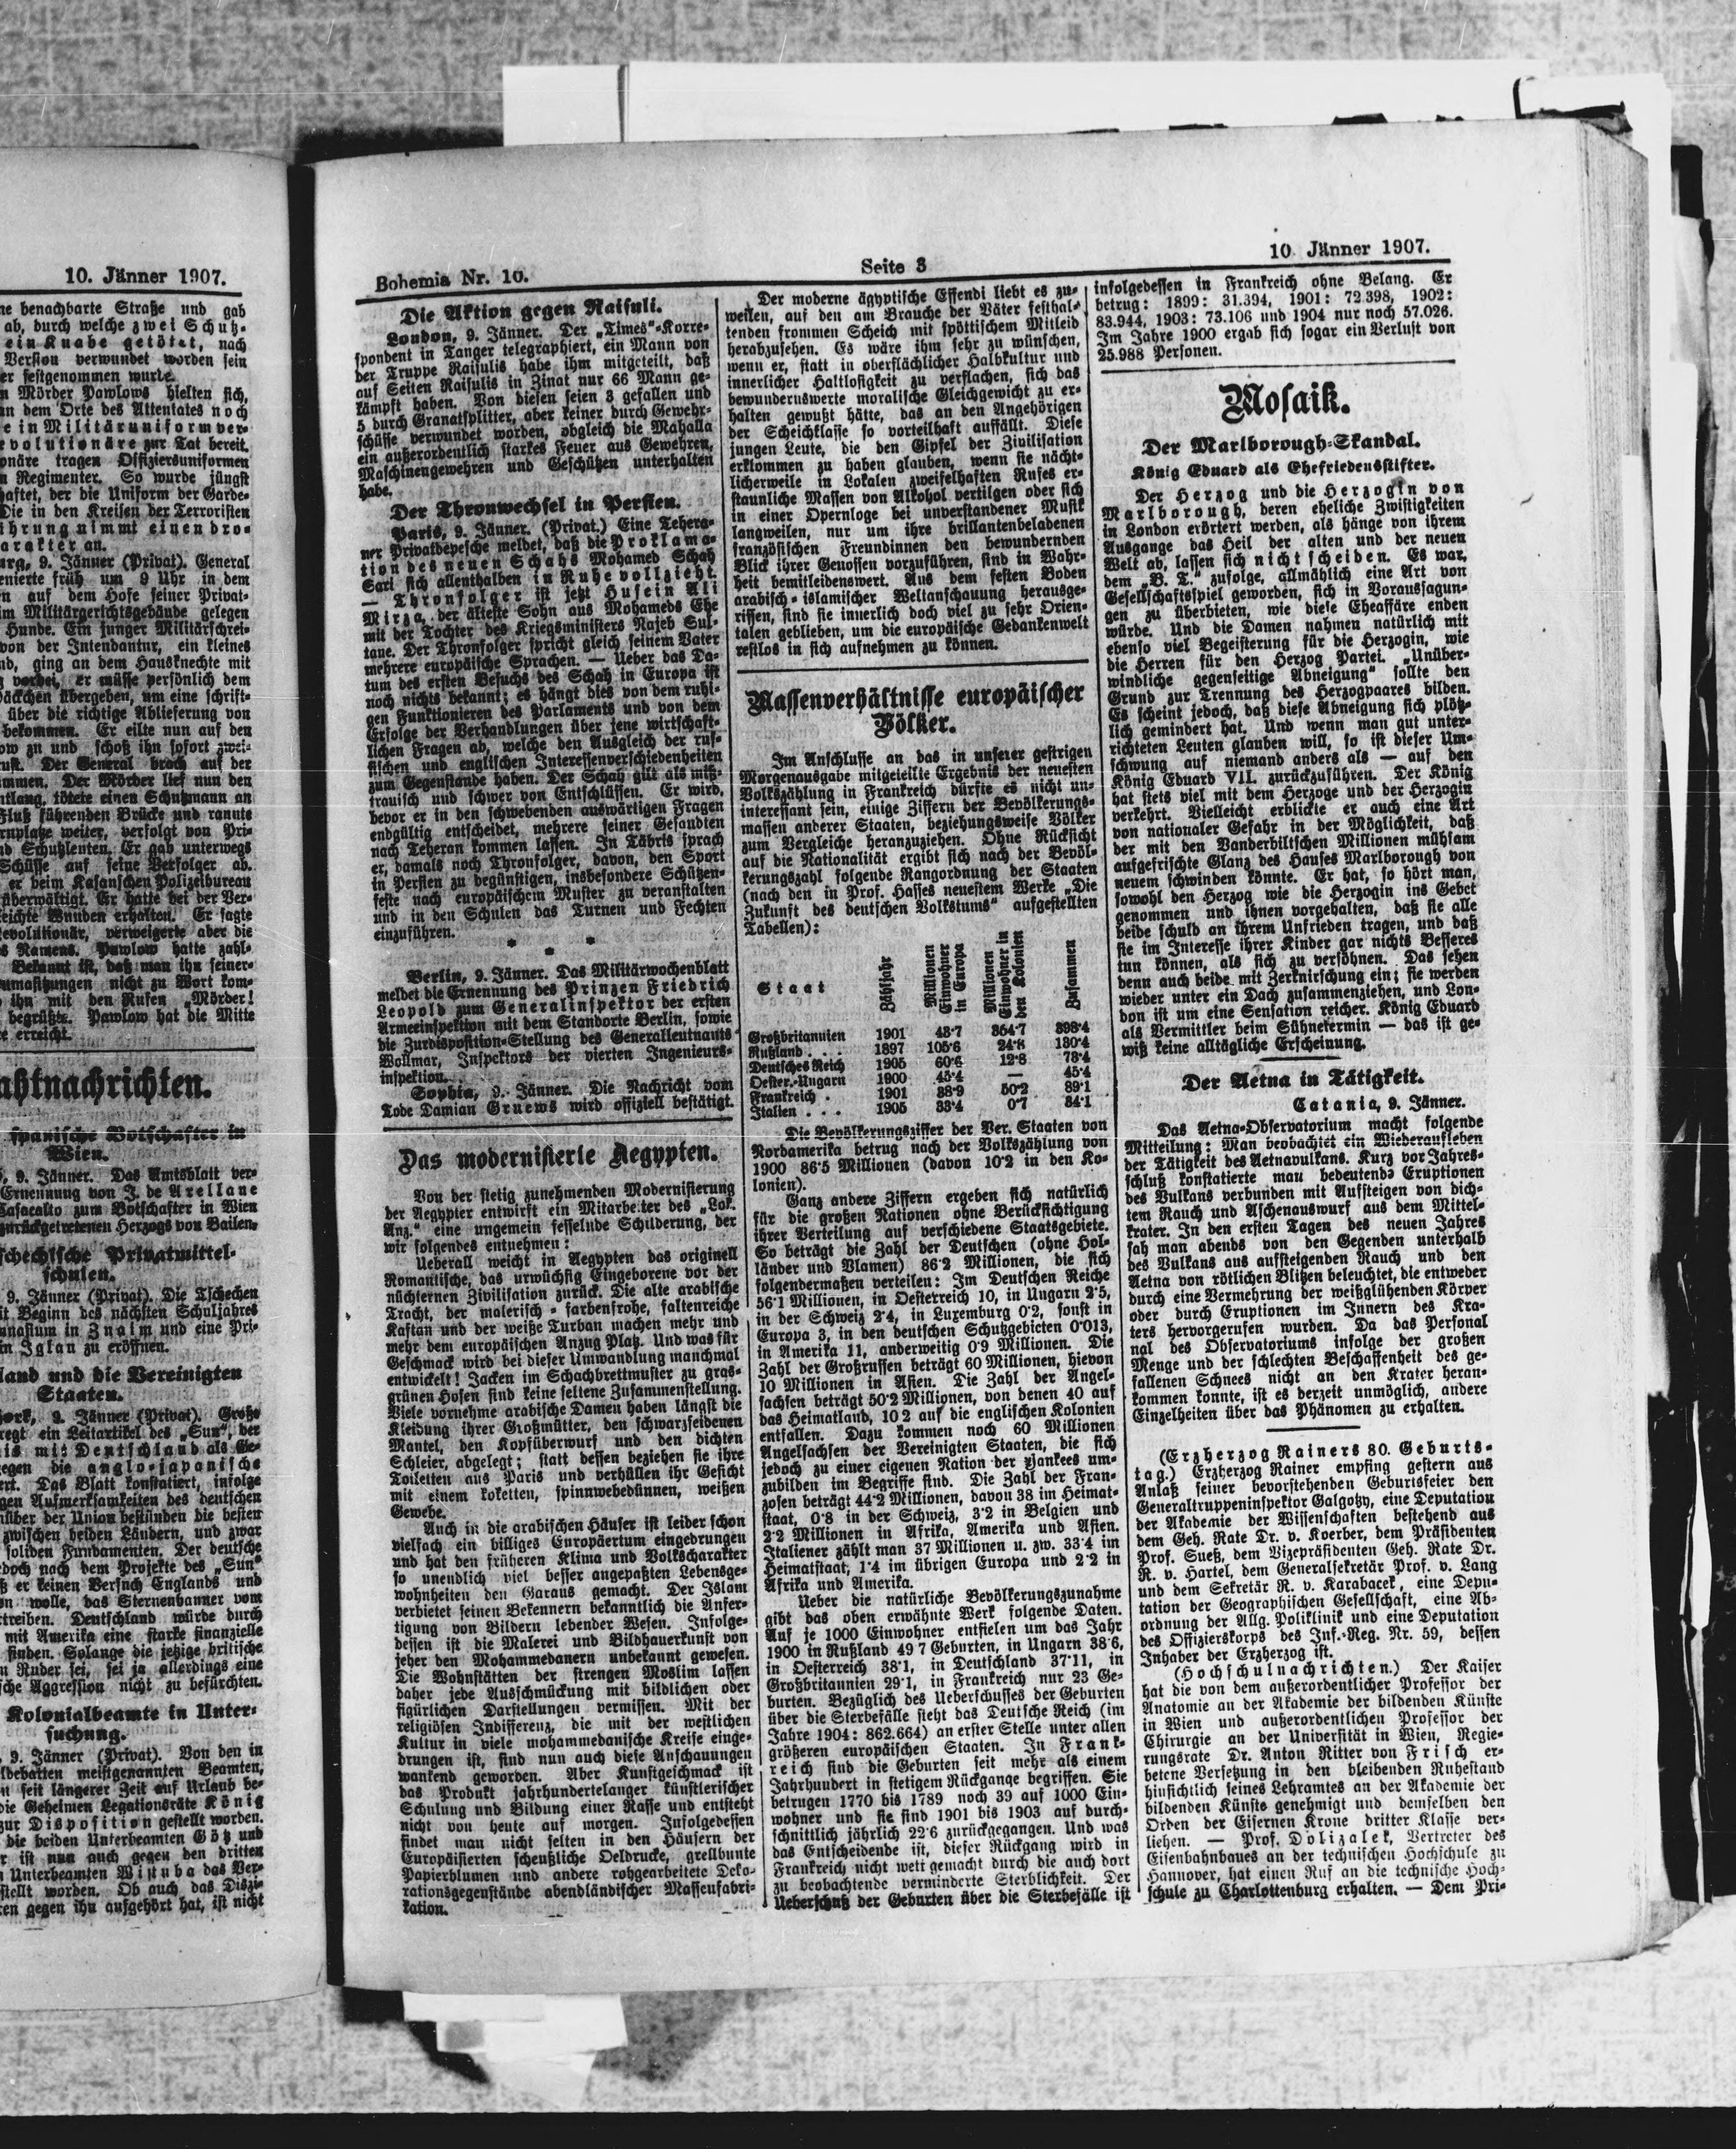 10. Jänner 1907.
ne benachbarte Straße und gab
ab, durch welche zwei Schutz-
ein Knabe getötet, nach
Version verwundet worden sein
er festgenommen wurde.
n Mörder Pawlows hielten sich,
an dem Orte des Attentates noch
e in Militäruniform ver-
evolutionäre zur Tat bereit.
onäre tragen Offiziersuniformen
n Regimenter. So wurde jüngst
haftet, der die Uniform der Garde-
Die in den Kreisen der Terroristen
ihrung nimmt einen dro-
arakter an.
urg, 9. Jänner (Privat). General
enierte früh um 9 Uhr in dem
n auf dem Hofe seiner Privat-
im Militärgerichtsgebäude gelegen
Hunde. Ein junger Militärschrei-
von der Intendantur, ein kleines
nd, ging an dem Hausknechte mit
vorbei, er müsse persönlich dem
päckchen übergeben, um eine schrift-
über die richtige Ablieferung von
bekommen. Er eilte nun auf den
ow zu und schoß ihn sofort zwei-
rust. Der General brach auf der
ammen. Der Mörder lief nun den
ntlang, tötete einen Schutzmann an
Fluß führenden Brücke und rannte
rnplatze weiter, verfolgt von Pri-
nd Schutzleuten. Er gab unterwegs
Schüsse auf seine Verfolger ab.
er beim Kasanschen Polizeibureau
überwältigt. Er hatte bei der Ver-
leichte Wunden erhalten. Er sagte
evolutionär, verweigerte aber die
s Namens. Pawlow hatte zahl-
Bekannt ist, daß man ihn seiner-
umasitzungen nicht zu Wort kom-
ihn mit den Rufen „Mörder!
begrüßte. Pawlow hat die Mitte
e erreicht.
ahtnachrichten.
spanische Botschafter in
Wien.
9. Jänner. Das Amtsblatt ver-
Ernennung von J. de Arellane
Casacalto zum Botschafter in Wien
zurückgetretenen Herzogs von Bailen.
schechische Privatmittel-
schulen.
9. Jänner (Privat). Die Tschechen
it Beginn des nächsten Schuljahres
mnasium in Znaim und eine Pri-
in Iglau zu eröffnen.
land und die Vereinigten
Staaten.
york, 9. Jänner (Privat). Große
regt ein Leitartikel des „Sun“, der
is mit Deutschland als Ge-
egen die anglo-japanische
ert. Das Blatt konstatiert, infolge
gen Aufmerksamkeiten des deutschen
nüber der Union bestünden die besten
zwischen beiden Ländern, und zwar
soliden Fundamenten. Der deutsche
doch nach dem Projekte des „Sun“
ß er keinen Versuch Englands und
on wolle, das Sternenbanner vom
rtreiben. Deutschland würde durch
mit Amerika eine starke finanzielle
finden. Solange die jetzige britische
n Ruder sei, sei ja allerdings eine
sche Aggression nicht zu befürchten.
Kolonialbeamte in Unter-
suchung.
9. Jänner (Privat). Von den in
ldebatten meistgenannten Beamten,
t seit längerer Zeit auf Urlaub be-
die Geheimen Legationsräte König
zur Disposition gestellt worden.
die beiden Unterbeamten Götz und
r ist nun auch gegen den dritten
Unterbeamten Wistuba das Ver-
stellt worden. Ob auch das Diszi-
en gegen ihn aufgehört hat, ist nicht
Bohemia Nr. 10.
Seite 3
10. Jänner 1907.
Die Aktion gegen Raisuli.
London, 9. Jänner. Der „Times“-Korre-
spondent in Tanger telegraphiert, ein Mann von
der Truppe Raisulis habe ihm mitgeteilt, daß
auf Seiten Raisulis in Zinat nur 66 Mann ge-
kämpft haben. Von diesen seien 3 gefallen und
5 durch Granatsplitter, aber keiner durch Gewehr-
schüsse verwundet worden, obgleich die Mahalla
ein außerordentlich starkes Feuer aus Gewehren,
Maschinengewehren und Geschützen unterhalten
habe.
Der Thronwechsel in Persien.
Paris, 9. Jänner. (Privat.) Eine Tehera-
ner Privatdepesche meldet, daß die Proklama-
tion des neuen Schahs Mohamed Schah
Sarl sich allenthalben in Ruhe vollzieht.
— Thronfolger ist jetzt Husein Ali
Mirza, der älteste Sohn aus Mohameds Ehe
mit der Tochter des Kriegsministers Najeb Sul-
tane. Der Thronfolger spricht gleich seinem Vater
mehrere europäische Sprachen. — Ueber das Da-
tum des ersten Besuchs des Schah in Europa ist
noch nichts bekannt; es hängt dies von dem ruhi-
gen Funktionieren des Parlaments und von dem
Erfolge der Verhandlungen über jene wirtschaft-
lichen Fragen ab, welche den Ausgleich der rus-
sischen und englischen Interessenverschiedenheiten
zum Gegenstande haben. Der Schah gilt als miß-
trauisch und schwer von Entschlüssen. Er wird,
bevor er in den schwebenden auswärtigen Fragen
endgültig entscheidet, mehrere seiner Gesandten
nach Teheran kommen lassen. In Täbris sprach
er, damals noch Thronfolger, davon, den Sport
in Persien zu begünstigen, insbesondere Schützen-
feste nach europäischem Muster zu veranstalten
und in den Schulen das Turnen und Fechten
einzuführen.
* * *
Berlin, 9. Jänner. Das Militärwochenblatt
meldet die Ernennung des Prinzen Friedrich
Leopold zum Generalinspektor der ersten
Armeeinspektion mit dem Standorte Berlin, sowie
die Zurdisposition-Stellung des Generalleutnants
Wollmar, Inspektors der vierten Ingenieurs-
inspektion.
Sophia, 9. Jänner. Die Nachricht vom
Tode Damian Gruews wird offiziell bestätigt.
Das modernisierte Aegypten.
Von der stetig zunehmenden Modernisierung
der Aegypter entwirft ein Mitarbeiter des „Lok.
Anz.“ eine ungemein fesselnde Schilderung, der
wir folgendes entnehmen:
Ueberall weicht in Aegypten das originell
Romantische, das urwüchsig Eingeborene vor der
nüchternen Zivilisation zurück. Die alte arabische
Tracht, der malerisch-farbenfrohe, faltenreiche
Kaftan und der weiße Turban machen mehr und
mehr dem europäischen Anzug Platz. Und was für
Geschmack wird bei dieser Umwandlung manchmal
entwickelt! Jacken im Schachbrettmuster zu gras-
grünen Hosen sind keine seltene Zusammenstellung.
Viele vornehme arabische Damen haben längst die
Kleidung ihrer Großmütter, den schwarzseidenen
Mantel, den Kopfüberwurf und den dichten
Schleier, abgelegt; statt dessen beziehen sie ihre
Toiletten aus Paris und verhüllen ihr Gesicht
mit einem koketten, spinnwebedünnen, weißen
Gewebe.
Auch in die arabischen Häuser ist leider schon
vielfach ein billiges Europäertum eingedrungen
und hat den früheren Klima und Volkscharakter
so unendlich viel besser angepaßten Lebensge-
wohnheiten den Garaus gemacht. Der Islam
verbietet seinen Bekennern bekanntlich die Anfer-
tigung von Bildern lebender Wesen. Infolge-
dessen ist die Malerei und Bildhauerkunst von
jeher den Mohammedanern unbekannt gewesen.
Die Wohnstätten der strengen Moslim lassen
daher jede Ausschmückung mit bildlichen oder
figürlichen Darstellungen vermissen. Mit der
religiösen Indifferenz, die mit der westlichen
Kultur in viele mohammedanische Kreise einge-
drungen ist, sind nun auch diese Anschauungen
wankend geworden. Aber Kunstgeschmack ist
das Produkt jahrhundertelanger künstlerischer
Schulung und Bildung einer Rasse und entsteht
nicht von heute auf morgen. Infolgedessen
findet man nicht selten in den Häusern der
Europäisierten scheußliche Oeldrucke, grellbunte
Papierblumen und andere rohgearbeitete Deko-
rationsgegenstände abendländischer Massenfabri-
kation.
Der moderne ägyptische Effendi liebt es zu-
weilen, auf den am Brauche der Väter festhal-
tenden frommen Scheich mit spöttischem Mitleid
herabzusehen. Es wäre ihm sehr zu wünschen,
wenn er, statt in oberflächlicher Halbkultur und
innerlicher Haltlosigkeit zu verflachen, sich das
bewundernswerte moralische Gleichgewicht zu er-
halten gewußt hätte, das an den Angehörigen
der Scheichklasse so vorteilhaft auffällt. Diese
jungen Leute, die den Gipfel der Zivilisation
erklommen zu haben glauben, wenn sie nächt-
licherweile in Lokalen zweifelhaften Rufes er-
staunliche Massen von Alkohol vertilgen oder sich
in einer Opernloge bei unverstandener Musik
langweilen, nur um ihre brillantenbeladenen
französischen Freundinnen den bewundernden
Blick ihrer Genossen vorzuführen, sind in Wahr-
heit bemitleidenswert. Aus dem festen Boden
arabisch-islamischer Weltanschauung herausge-
rissen, sind sie innerlich doch viel zu sehr Orien-
talen geblieben, um die europäische Gedankenwelt
restlos in sich aufnehmen zu können.
Massenverhältnisse europäischer
Völker.
Im Anschlusse an das in unserer gestrigen
Morgenausgabe mitgeteilte Ergebnis der neuesten
Volkszählung in Frankreich dürfte es nicht un-
interessant sein, einige Ziffern der Bevölkerungs-
massen anderer Staaten, beziehungsweise Völker
zum Vergleiche heranzuziehen. Ohne Rücksicht
auf die Nationalität ergibt sich nach der Bevöl-
kerungszahl folgende Rangordnung der Staaten
(nach den in Prof. Hasses neuestem Werke „Die
Zukunft des deutschen Volkstums“ aufgestellten
Tabellen):
Staat Zähljahr Millionen Einwohner in Europa Millionen Einwohner in den Kolonien Zusammen
Großbritannien 1901 43·7 354·7 398·4
Rußland . . . 1897 105·6 24·8 130·4
Deutsches Reich 1905 60·6 12·8 73·4
Oester.-Ungarn 1900 45·4 — 45·4
Frankreich . 1901 38·9 50·2 89·1
Italien . . . 1905 33·4 0·7 34·1
Die Bevölkerungsziffer der Ver. Staaten von
Nordamerika betrug nach der Volkszählung von
1900 86·5 Millionen (davon 10·2 in den Ko-
lonien).
Ganz andere Ziffern ergeben sich natürlich
für die großen Nationen ohne Berücksichtigung
ihrer Verteilung auf verschiedene Staatsgebiete.
So beträgt die Zahl der Deutschen (ohne Hol-
länder und Vlamen) 86·2 Millionen, die sich
folgendermaßen verteilen: Im Deutschen Reiche
56·1 Millionen, in Oesterreich 10, in Ungarn 2·5,
in der Schweiz 2·4, in Luxemburg 0·2, sonst in
Europa 3, in den deutschen Schutzgebieten 0·013,
in Amerika 11, anderweitig 0·9 Millionen. Die
Zahl der Großrussen beträgt 60 Millionen, hievon
10 Millionen in Asien. Die Zahl der Angel-
sachsen beträgt 50·2 Millionen, von denen 40 auf
das Heimatland, 10·2 auf die englischen Kolonien
entfallen. Dazu kommen noch 60 Millionen
Angelsachsen der Vereinigten Staaten, die sich
jedoch zu einer eigenen Nation der Yankees um-
zubilden im Begriffe sind. Die Zahl der Fran-
zosen beträgt 44·2 Millionen, davon 38 im Heimat-
staat, 0·8 in der Schweiz, 3·2 in Belgien und
2·2 Millionen in Afrika, Amerika und Asien.
Italiener zählt man 37 Millionen u. zw. 33·4 im
Heimatstaat, 1·4 im übrigen Europa und 2·2 in
Afrika und Amerika.
Ueber die natürliche Bevölkerungszunahme
gibt das oben erwähnte Werk folgende Daten.
Auf je 1000 Einwohner entfielen um das Jahr
1900 in Rußland 49·7 Geburten, in Ungarn 38·6,
in Oesterreich 38·1, in Deutschland 37·11, in
Großbritannien 29·1, in Frankreich nur 23 Ge-
burten. Bezüglich des Ueberschusses der Geburten
über die Sterbefälle steht das Deutsche Reich (im
Jahre 1904: 862.664) an erster Stelle unter allen
größeren europäischen Staaten. In Frank-
reich sind die Geburten seit mehr als einem
Jahrhundert in stetigem Rückgange begriffen. Sie
betrugen 1770 bis 1789 noch 39 auf 1000 Ein-
wohner und sie sind 1901 bis 1903 auf durch-
schnittlich jährlich 22·6 zurückgegangen. Und was
das Entscheidende ist, dieser Rückgang wird in
Frankreich nicht wett gemacht durch die auch dort
zu beobachtende verminderte Sterblichkeit. Der
Ueberschuß der Geburten über die Sterbefälle ist
infolgedessen in Frankreich ohne Belang. Er
betrug: 1899: 31.394, 1901: 72.398, 1902:
83.944, 1903: 73.106 und 1904 nur noch 57.026.
Im Jahre 1900 ergab sich sogar ein Verlust von
25.988 Personen.
Mosaik.
Der Marlborough-Skandal.
König Eduard als Ehefriedensstifter.
Der Herzog und die Herzogin von
Marlborough, deren eheliche Zwistigkeiten
in London erörtert werden, als hänge von ihrem
Ausgange das Heil der alten und der neuen
Welt ab, lassen sich nicht scheiden. Es war,
dem „B. T.“ zufolge, allmählich eine Art von
Gesellschaftsspiel geworden, sich in Voraussagun-
gen zu überbieten, wie diese Eheaffäre enden
würde. Und die Damen nahmen natürlich mit
ebenso viel Begeisterung für die Herzogin, wie
die Herren für den Herzog Partei. „Unüber-
windliche gegenseitige Abneigung“ sollte den
Grund zur Trennung des Herzogpaares bilden.
Es scheint jedoch, daß diese Abneigung sich plötz-
lich gemindert hat. Und wenn man gut unter-
richteten Leuten glauben will, so ist dieser Um-
schwung auf niemand anders als — auf den
König Eduard VII. zurückzuführen. Der König
hat stets viel mit dem Herzoge und der Herzogin
verkehrt. Vielleicht erblickte er auch eine Art
von nationaler Gefahr in der Möglichkeit, daß
der mit den Vanderbiltschen Millionen mühsam
aufgefrischte Glanz des Hauses Marlborough von
neuem schwinden könnte. Er hat, so hört man,
sowohl den Herzog wie die Herzogin ins Gebet
genommen und ihnen vorgehalten, daß sie alle
beide schuld an ihrem Unfrieden tragen, und daß
sie im Interesse ihrer Kinder gar nichts Besseres
tun können, als sich zu versöhnen. Das sehen
denn auch beide mit Zerknirschung ein; sie werden
wieder unter ein Dach zusammenziehen, und Lon-
don ist um eine Sensation reicher. König Eduard
als Vermittler beim Sühnetermin — das ist ge-
wiß keine alltägliche Erscheinung.
Der Aetna in Tätigkeit.
Catania, 9. Jänner.
Das Aetna-Observatorium macht folgende
Mitteilung: Man beobachtet ein Wiederaufleben
der Tätigkeit des Aetnavulkans. Kurz vor Jahres-
schluß konstatierte man bedeutende Eruptionen
des Vulkans verbunden mit Aufsteigen von dich-
tem Rauch und Aschenauswurf aus dem Mittel-
krater. In den ersten Tagen des neuen Jahres
sah man abends von den Gegenden unterhalb
des Vulkans aus aufsteigenden Rauch und den
Aetna von rötlichen Blitzen beleuchtet, die entweder
durch eine Vermehrung der weißglühenden Körper
oder durch Eruptionen im Innern des Kra-
ters hervorgerufen wurden. Da das Personal
nal des Observatoriums infolge der großen
Menge und der schlechten Beschaffenheit des ge-
fallenen Schnees nicht an den Krater heran-
kommen konnte, ist es derzeit unmöglich, andere
Einzelheiten über das Phänomen zu erhalten.
(Erzherzog Rainers 80. Geburts-
tag.) Erzherzog Rainer empfing gestern aus
Anlaß seiner bevorstehenden Geburtsfeier den
Generaltruppeninspektor Galgotzy, eine Deputation
der Akademie der Wissenschaften bestehend aus
dem Geh. Rate Dr. v. Koerber, dem Präsidenten
Prof. Sueß, dem Vizepräsidenten Geh. Rate Dr.
R. v. Hartel, dem Generalsekretär Prof. v. Lang
und dem Sekretär R. v. Karabacek, eine Depu-
tation der Geographischen Gesellschaft, eine Ab-
ordnung der Allg. Poliklinik und eine Deputation
des Offizierskorps des Inf.-Reg. Nr. 59, dessen
Inhaber der Erzherzog ist.
(Hochschulnachrichten.) Der Kaiser
hat die von dem außerordentlicher Professor der
Anatomie an der Akademie der bildenden Künste
in Wien und außerordentlichen Professor der
Chirurgie an der Universität in Wien, Regie-
rungsrate Dr. Anton Ritter von Frisch er-
betene Versetzung in den bleibenden Ruhestand
hinsichtlich seines Lehramtes an der Akademie der
bildenden Künste genehmigt und demselben den
Orden der Eisernen Krone dritter Klasse ver-
liehen. — Prof. Dolizalek, Vertreter des
Eisenbahnbaues an der technischen Hochschule zu
Hannover, hat einen Ruf an die technische Hoch-
schule zu Charlottenburg erhalten. — Dem Pri-